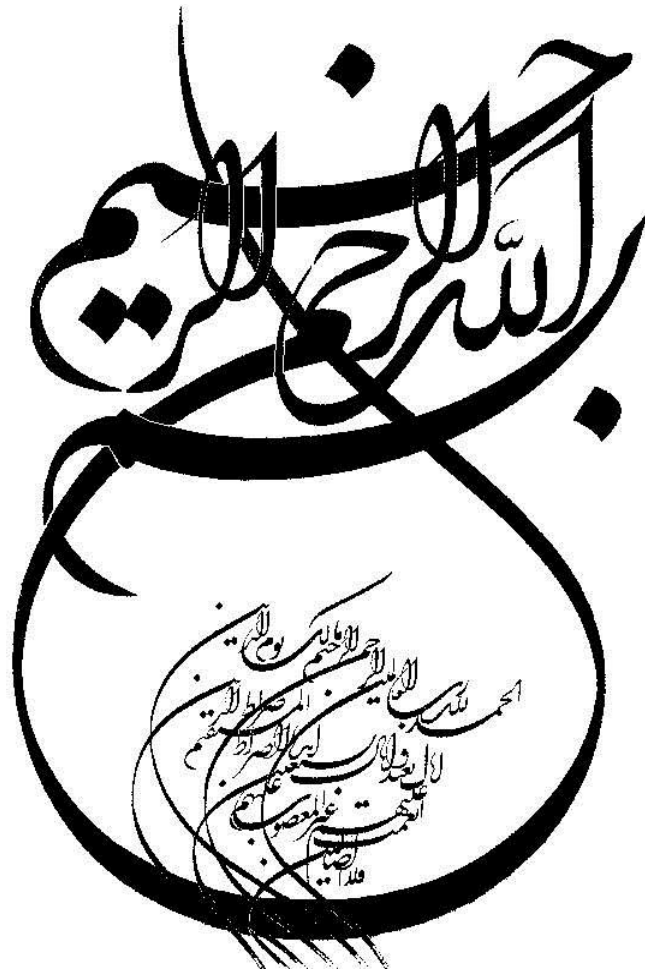 بسم الله الرحمن الرحيم
الحمد لله رب العالمين الرحمن الرحيم مالك يوم الدين
اياك نعبد و اياك نستعين اهدنا الصراط المستقيم صراط الذين
انعمت عليهم غير المغضوب عليهم
ولا الضالين